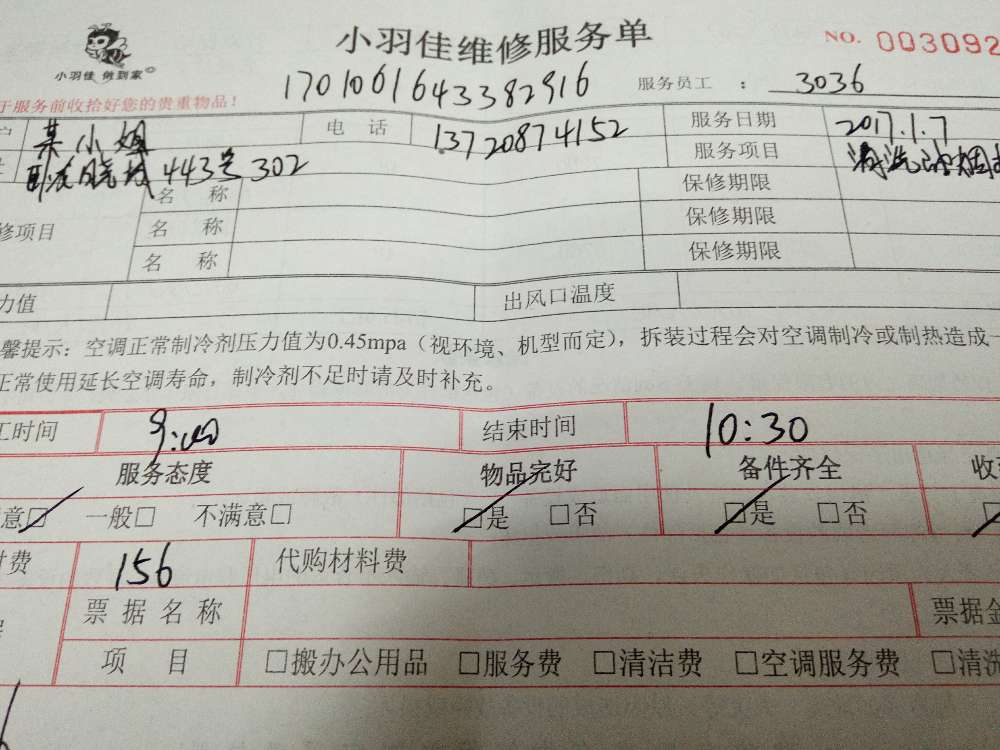 小羽佳维修服务单
NO. 003092
小羽佳 做到家
1701061643382916
服务员工 : 3036
于服务前收拾好您的贵重物品!
某小姐 电 话 13720874152 服务日期 2017.1.7
443号302 服务项目 清洗油烟
名 称 保修期限
修项目 名 称 保修期限
名 称 保修期限
力值 出风口温度
馨提示:空调正常制冷剂压力值为0.45mpa(视环境、机型而定),拆装过程会对空调制冷或制热造成一
正常使用延长空调寿命,制冷剂不足时请及时补充。
工时间 9:00 结束时间 10:30
服务态度 物品完好 备件齐全 收
意□ 一般□ 不满意□ □是 □否 □是 □否
付费 156 代购材料费
票据名称 票据金
项 目 □搬办公用品 □服务费 □清洁费 □空调服务费 □清洗